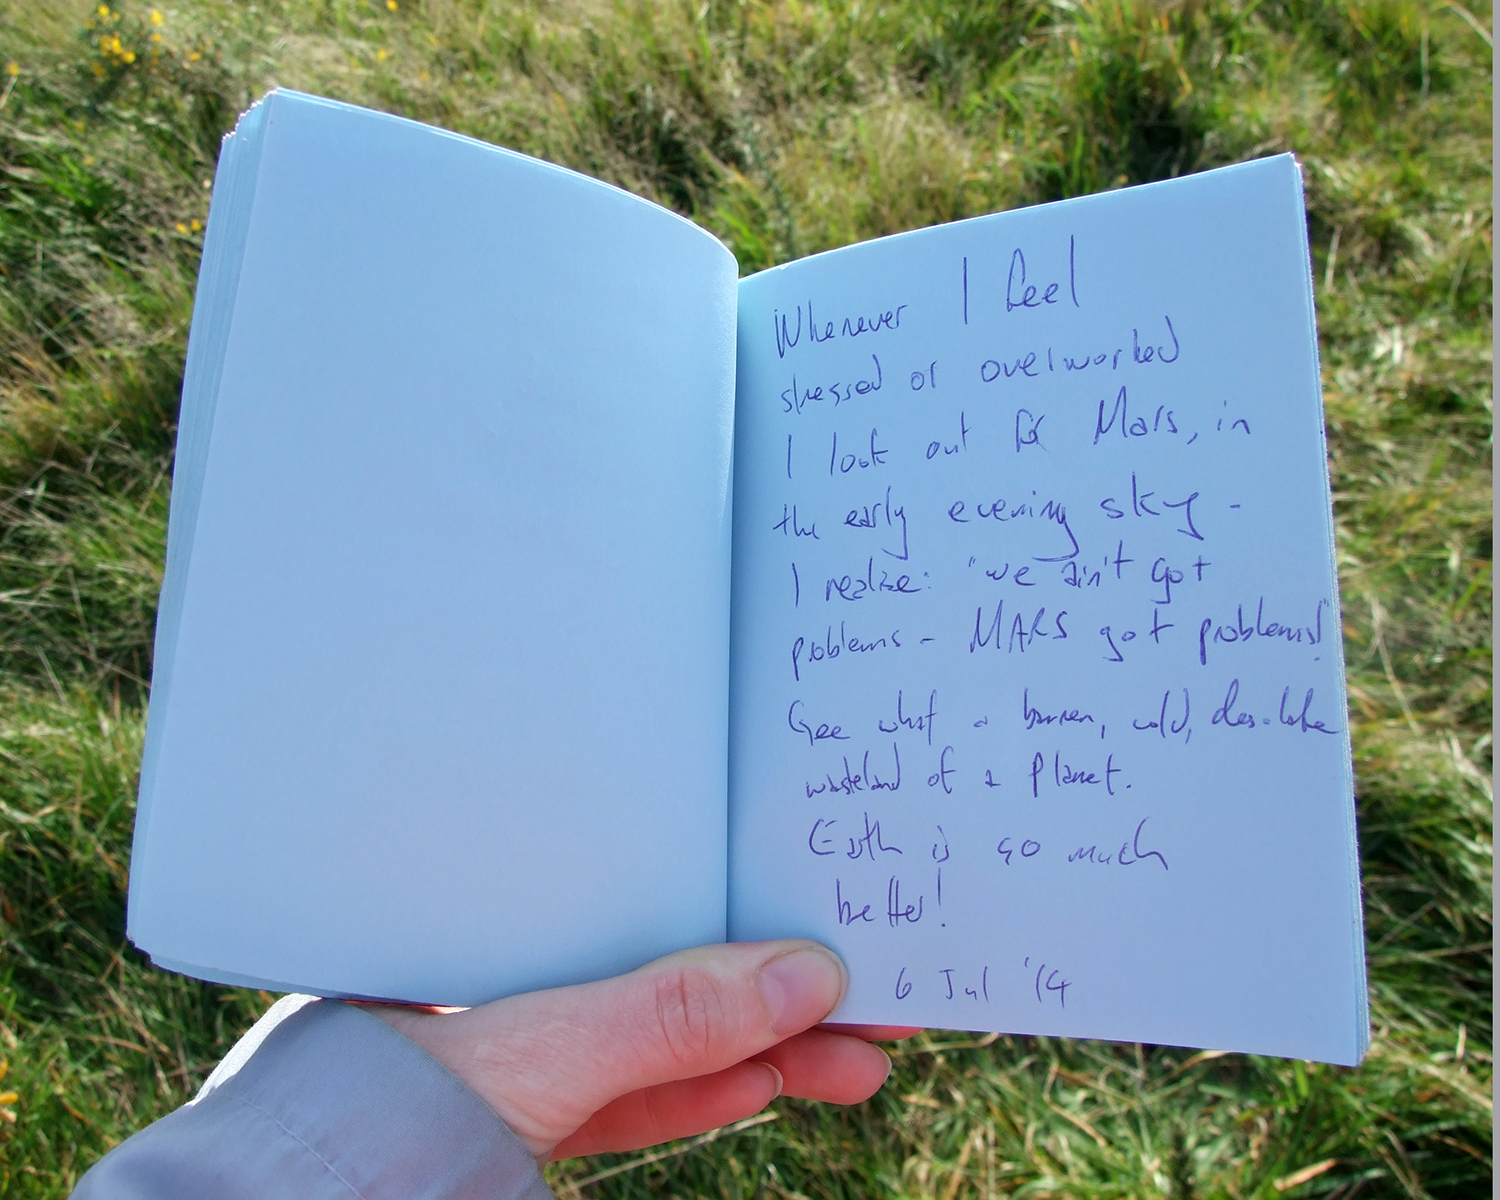 Whenever I feel
stressed or overworked
I look out for Mars, in
the early evening sky -
I realise: "we ain't got
problems - MARS got problems!"
See what a barren, cold, desolate
wasteland of a planet.
Earth is so much
better!
6 Jul '14